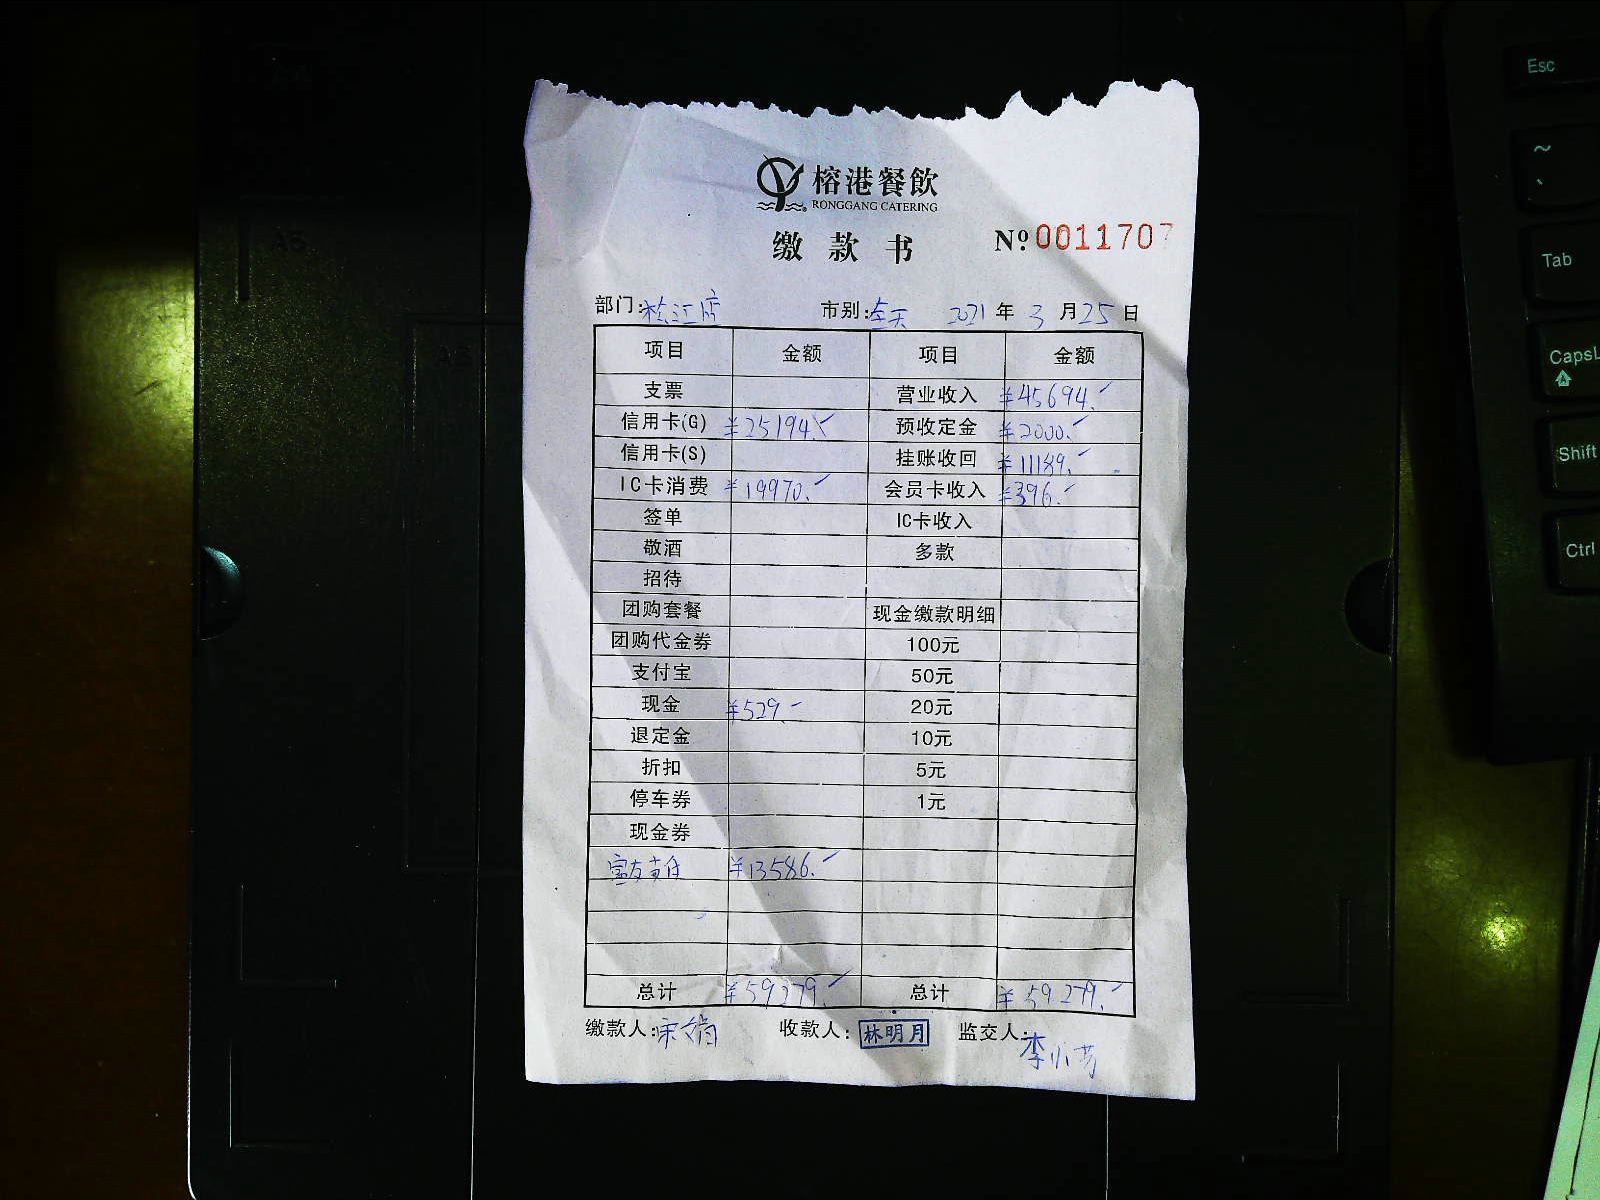 榕港餐飲
RONGGANG CATERING
缴款书 Nº 0011707
部门: 松江店 市别: 全天 2021 年 3 月 25 日
项目 金额 项目 金额
支票 营业收入 ¥45694.
信用卡(G) ¥25194. 预收定金 ¥2000.
信用卡(S) 挂账收回 ¥11189.
IC卡消费 ¥19970. 会员卡收入 ¥396.
签单 IC卡收入
敬酒 多款
招待
团购套餐 现金缴款明细
团购代金券 100元
支付宝 50元
现金 ¥529. 20元
退定金 10元
折扣 5元
停车券 1元
现金券
富友支付 ¥13586.
总计 ¥59279. 总计 ¥59279.
缴款人: 收款人: 林明月 监交人: 李小芳
Esc
~
`
Tab
CapsL
Shift
Ctrl